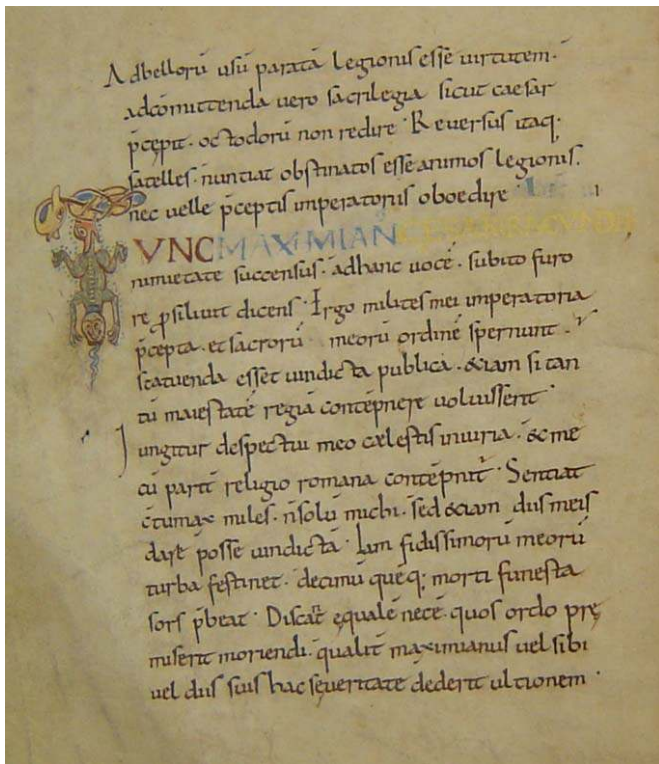 Ad bellorū usū paratā legionis esse uirtutem·
adcōmittenda uero sacrilegia sicut caesar
p̄cepit· octodorū non redire· Reuersus itaq;
satelles· nuntiat obstinatos esse animos legionis·
nec uelle p̄ceptis imperatoris oboedire·
TVNC MAXIMIAN
nimietate succensus· ad hanc uocē· subito furo
re ꝓsiliuit dicens· Ergo milites mei imperatoria
p̄cepta· et sacrorū meorū ordinē spernunt·
statuenda esset uindicta publica· &iam si tan
tū maiestatē regiā contēpnere uoluissent·
Iungitur despectui meo cælestis iniuria· & me
cū parit̄ religio romana contēpnit̄· Sentiat
c̄tumax miles· n̄ solū michi· sed &iam diis meis
dare posse uindictā· Iam fidissimorū meorū
turba festinet· decimū quēq; morti funesta
sors p̄beat· Discat̄ ęqualē necē· quos ordo prę
miserit moriendi· qualit̄ maximianus uel sibi
uel diis suis hac seueritate dederit ultionem·